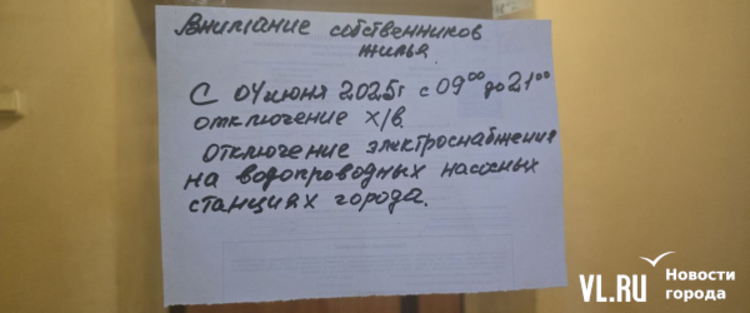 Внимание собственников
жилья
С 04 июня 2025г с 09⁰⁰ до 21⁰⁰
отключение х/в.
Отключение электроснабжения
на водопроводных насосных
станциях города.
VL.RU
Новости
города